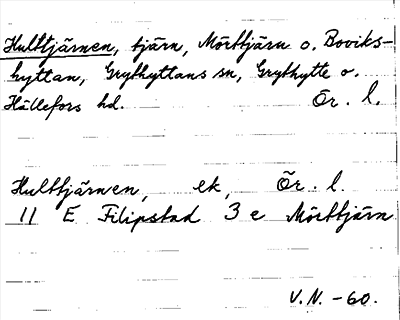 Hulttjärnen, tjärn, Mörttjärn o. Boviks-
hyttan, Grythyttans sn, Grythytte o.
Hällefors hd. Ör. l.
Hulttjärnen, ek, Ör. l.
11 E Filipstad 3 e Mörttjärn
V.N. -60.